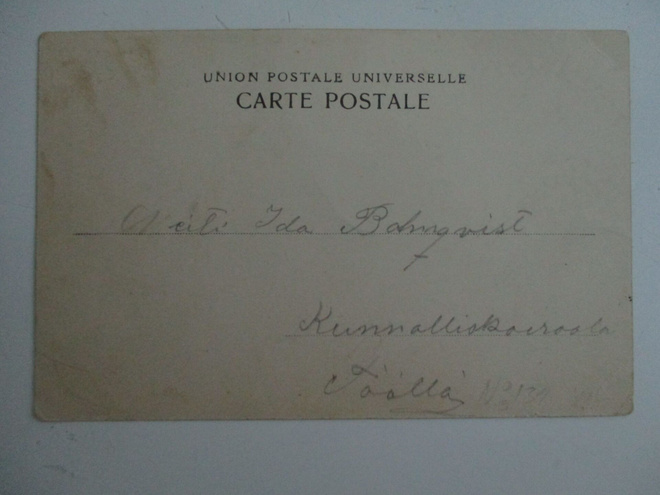 UNION POSTALE UNIVERSELLE
CARTE POSTALE
Neiti Ida Bahmqvist
Kunnalliskoiraala
Töölla